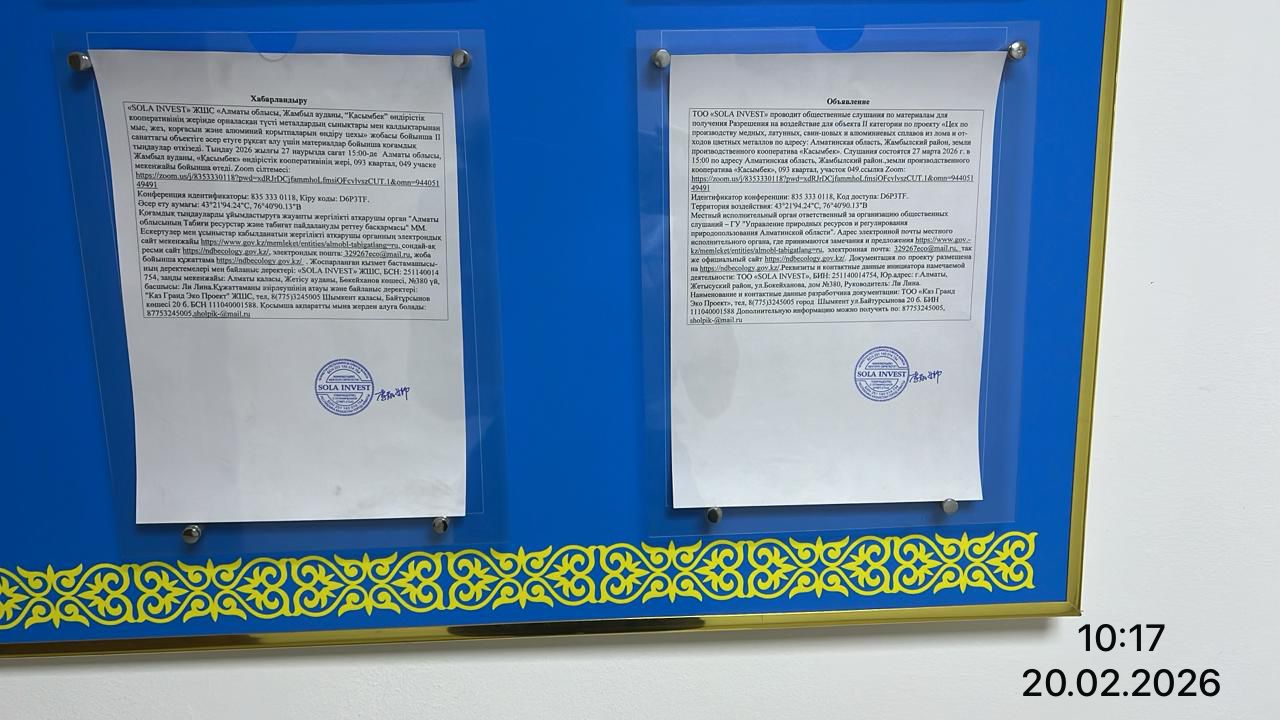 Хабарландыру
«SOLA INVEST» ЖШС «Алматы облысы, Жамбыл ауданы, "Қасымбек" өндірістік
кооперативінің жерінде орналасқан түсті металдардың сынықтары мен қалдықтарынан
мыс, жез, қорғасын және алюминий қорытпаларын өндіру цехы» жобасы бойынша II
санаттағы объектіге әсер етуге рұқсат алу үшін материалдар бойынша қоғамдық
тыңдаулар өткізеді. Тыңдау 2026 жылғы 27 наурызда сағат 15:00-де Алматы облысы,
Жамбыл ауданы, «Қасымбек» өндірістік кооперативінің жері, 093 квартал, 049 учаске
мекенжайы бойынша өтеді. Zoom сілтемесі:
https://zoom.us/j/8353330118?pwd=xdRJrDCjfammhoLfmsiOFcvlvszCUT.1&omn=944051
49491
Конференция идентификаторы: 835 333 0118, Кіру коды: D6P3TF.
Әсер ету аумағы: 43°21'94.24"С, 76°40'90.13"В
Қоғамдық тыңдауларды ұйымдастыруға жауапты жергілікті атқарушы орган "Алматы
облысының Табиғи ресурстар және табиғат пайдалануды реттеу басқармасы" ММ.
Ескертулер мен ұсыныстар қабылданатын жергілікті атқарушы органның электрондық
сайт мекенжайы https://www.gov.kz/memleket/entities/almobl-tabigatlang=ru, сондай-ақ
ресми сайт https://ndbecology.gov.kz/, электрондық пошта: 329267eco@mail.ru, жоба
бойынша құжаттама https://ndbecology.gov.kz/ . Жоспарланған қызмет бастамашысы-
ның деректемелері мен байланыс деректері: «SOLA INVEST» ЖШС, БСН: 251140014
754, заңды мекенжайы: Алматы қаласы, Жетісу ауданы, Бөкейханов көшесі, №380 үй,
басшысы: Ли Лина.Құжаттаманы әзірлеушінің атауы және байланыс деректері:
"Каз Гранд Эко Проект" ЖШС, тел, 8(775)3245005 Шымкент қаласы, Байтұрсынов
көшесі 20 б. БСН 111040001588. Қосымша ақпаратты мына жерден алуға болады:
87753245005,sholpik-@mail.ru
SOLA INVEST
Объявление
ТОО «SOLA INVEST» проводит общественные слушания по материалам для
получения Разрешения на воздействие для объекта II категории по проекту «Цех по
производству медных, латунных, свин-цовых и алюминиевых сплавов из лома и от-
ходов цветных металлов по адресу: Алматинская область, Жамбылский район, земли
производственного кооператива «Касымбек». Слушания состоятся 27 марта 2026 г. в
15:00 по адресу Алматинская область, Жамбылский район,земли производственного
кооператива «Касымбек», 093 квартал, участок 049.ссылка Zoom:
https://zoom.us/j/8353330118?pwd=xdRJrDCjfammhoLfmsiOFcvlvszCUT.1&omn=944051
49491
Идентификатор конференции: 835 333 0118, Код доступа: D6P3TF.
Территория воздействия: 43°21'94.24"С, 76°40'90.13"В
Местный исполнительный орган ответственный за организацию общественных
слушаний – ГУ "Управление природных ресурсов и регулирования
природопользования Алматинской области". Адрес электронной почты местного
исполнительного органа, где принимаются замечания и предложения https://www.gov.-
kz/memleket/entities/almobl-tabigatlang=ru, электронная почта: 329267eco@mail.ru, так
же официальный сайт https://ndbecology.gov.kz/. Документация по проекту размещена
на https://ndbecology.gov.kz/.Реквизиты и контактные данные инициатора намечаемой
деятельности: ТОО «SOLA INVEST», БИН: 251140014754, Юр.адрес: г.Алматы,
Жетысуский район, ул.Бокейханова, дом №380, Руководитель: Ли Лина.
Наименование и контактные данные разработчика документации: ТОО «Каз Гранд
Эко Проект», тел, 8(775)3245005 город Шымкент ул.Байтурсынова 20 б. БИН
111040001588 Дополнительную информацию можно получить по: 87753245005,
sholpik-@mail.ru
SOLA INVEST
10:17
20.02.2026